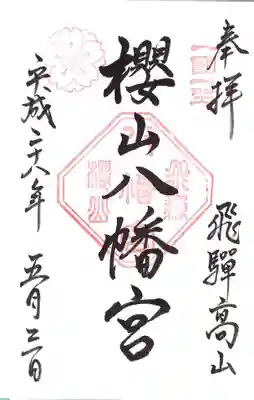 奉拝
飛騨高山
櫻山八幡宮
平成二十八年 五月三日